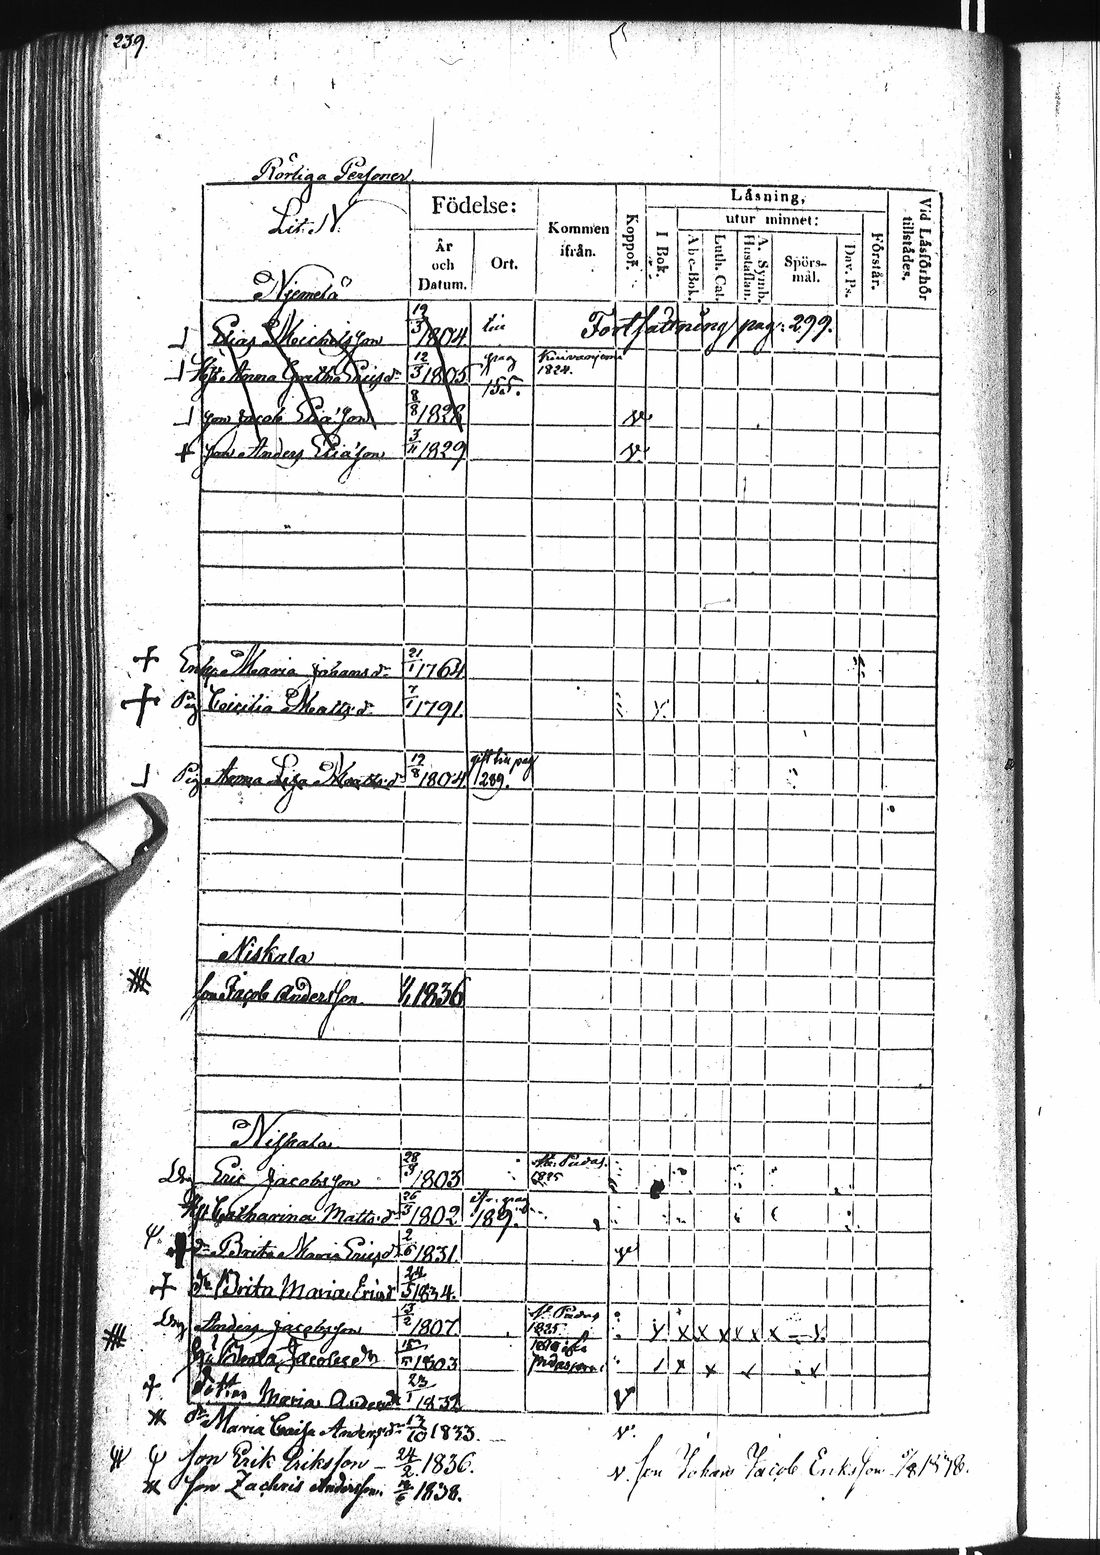 239.
Rörliga Personer.
Lit. N.
Födelse:
År och Datum.
Ort.
Kommen ifrån.
Koppor.
Läsning,
I Bok.
utur minnet:
Abc-Bok.
Luth. Cat.
A. Symb. Hustaflan.
Spörs-mål.
Dav. Ps.
Förstår.
Vid Läsförhör tillstädes.
Niemelä
Elias Michelsson 19/3 1804 Fortsättning pag. 299.
Anna Gretha 12/3 1805 pag 155. 1824.
son Jacob Elia'son 8/8 1828 v.
son Anders Elia'son 3/11 1829 v.
Enk. Maria Johansdr 21/1 1764
Pig Cecilia Mattsdr 7/1 1791.
Pig Anna Lisa Mattsdr 12/8 1804 gift till pag 289.
Niskala
son Jacob Andersson 1/1 1836
Niskala
Eric Jacobsson 28/9 1803 1835
Catharina Mattsdr 26/3 1802 pag 189.
dr Brita Maria Ericsdr 2/6 1831.
dr Brita Maria Ericsdr 24/5 1834.
Anders Jacobsson 13/2 1807. 1835
Jacobsdr 15/5 1803
Maria Andersdr 23/1 1832 V
dr Maria Caisa Andersdr 13/10 1833. v.
son Erik Eriksson 24/2 1836. v. son Johan Jacob Eriksson
son Zachris Andersson. 1838.